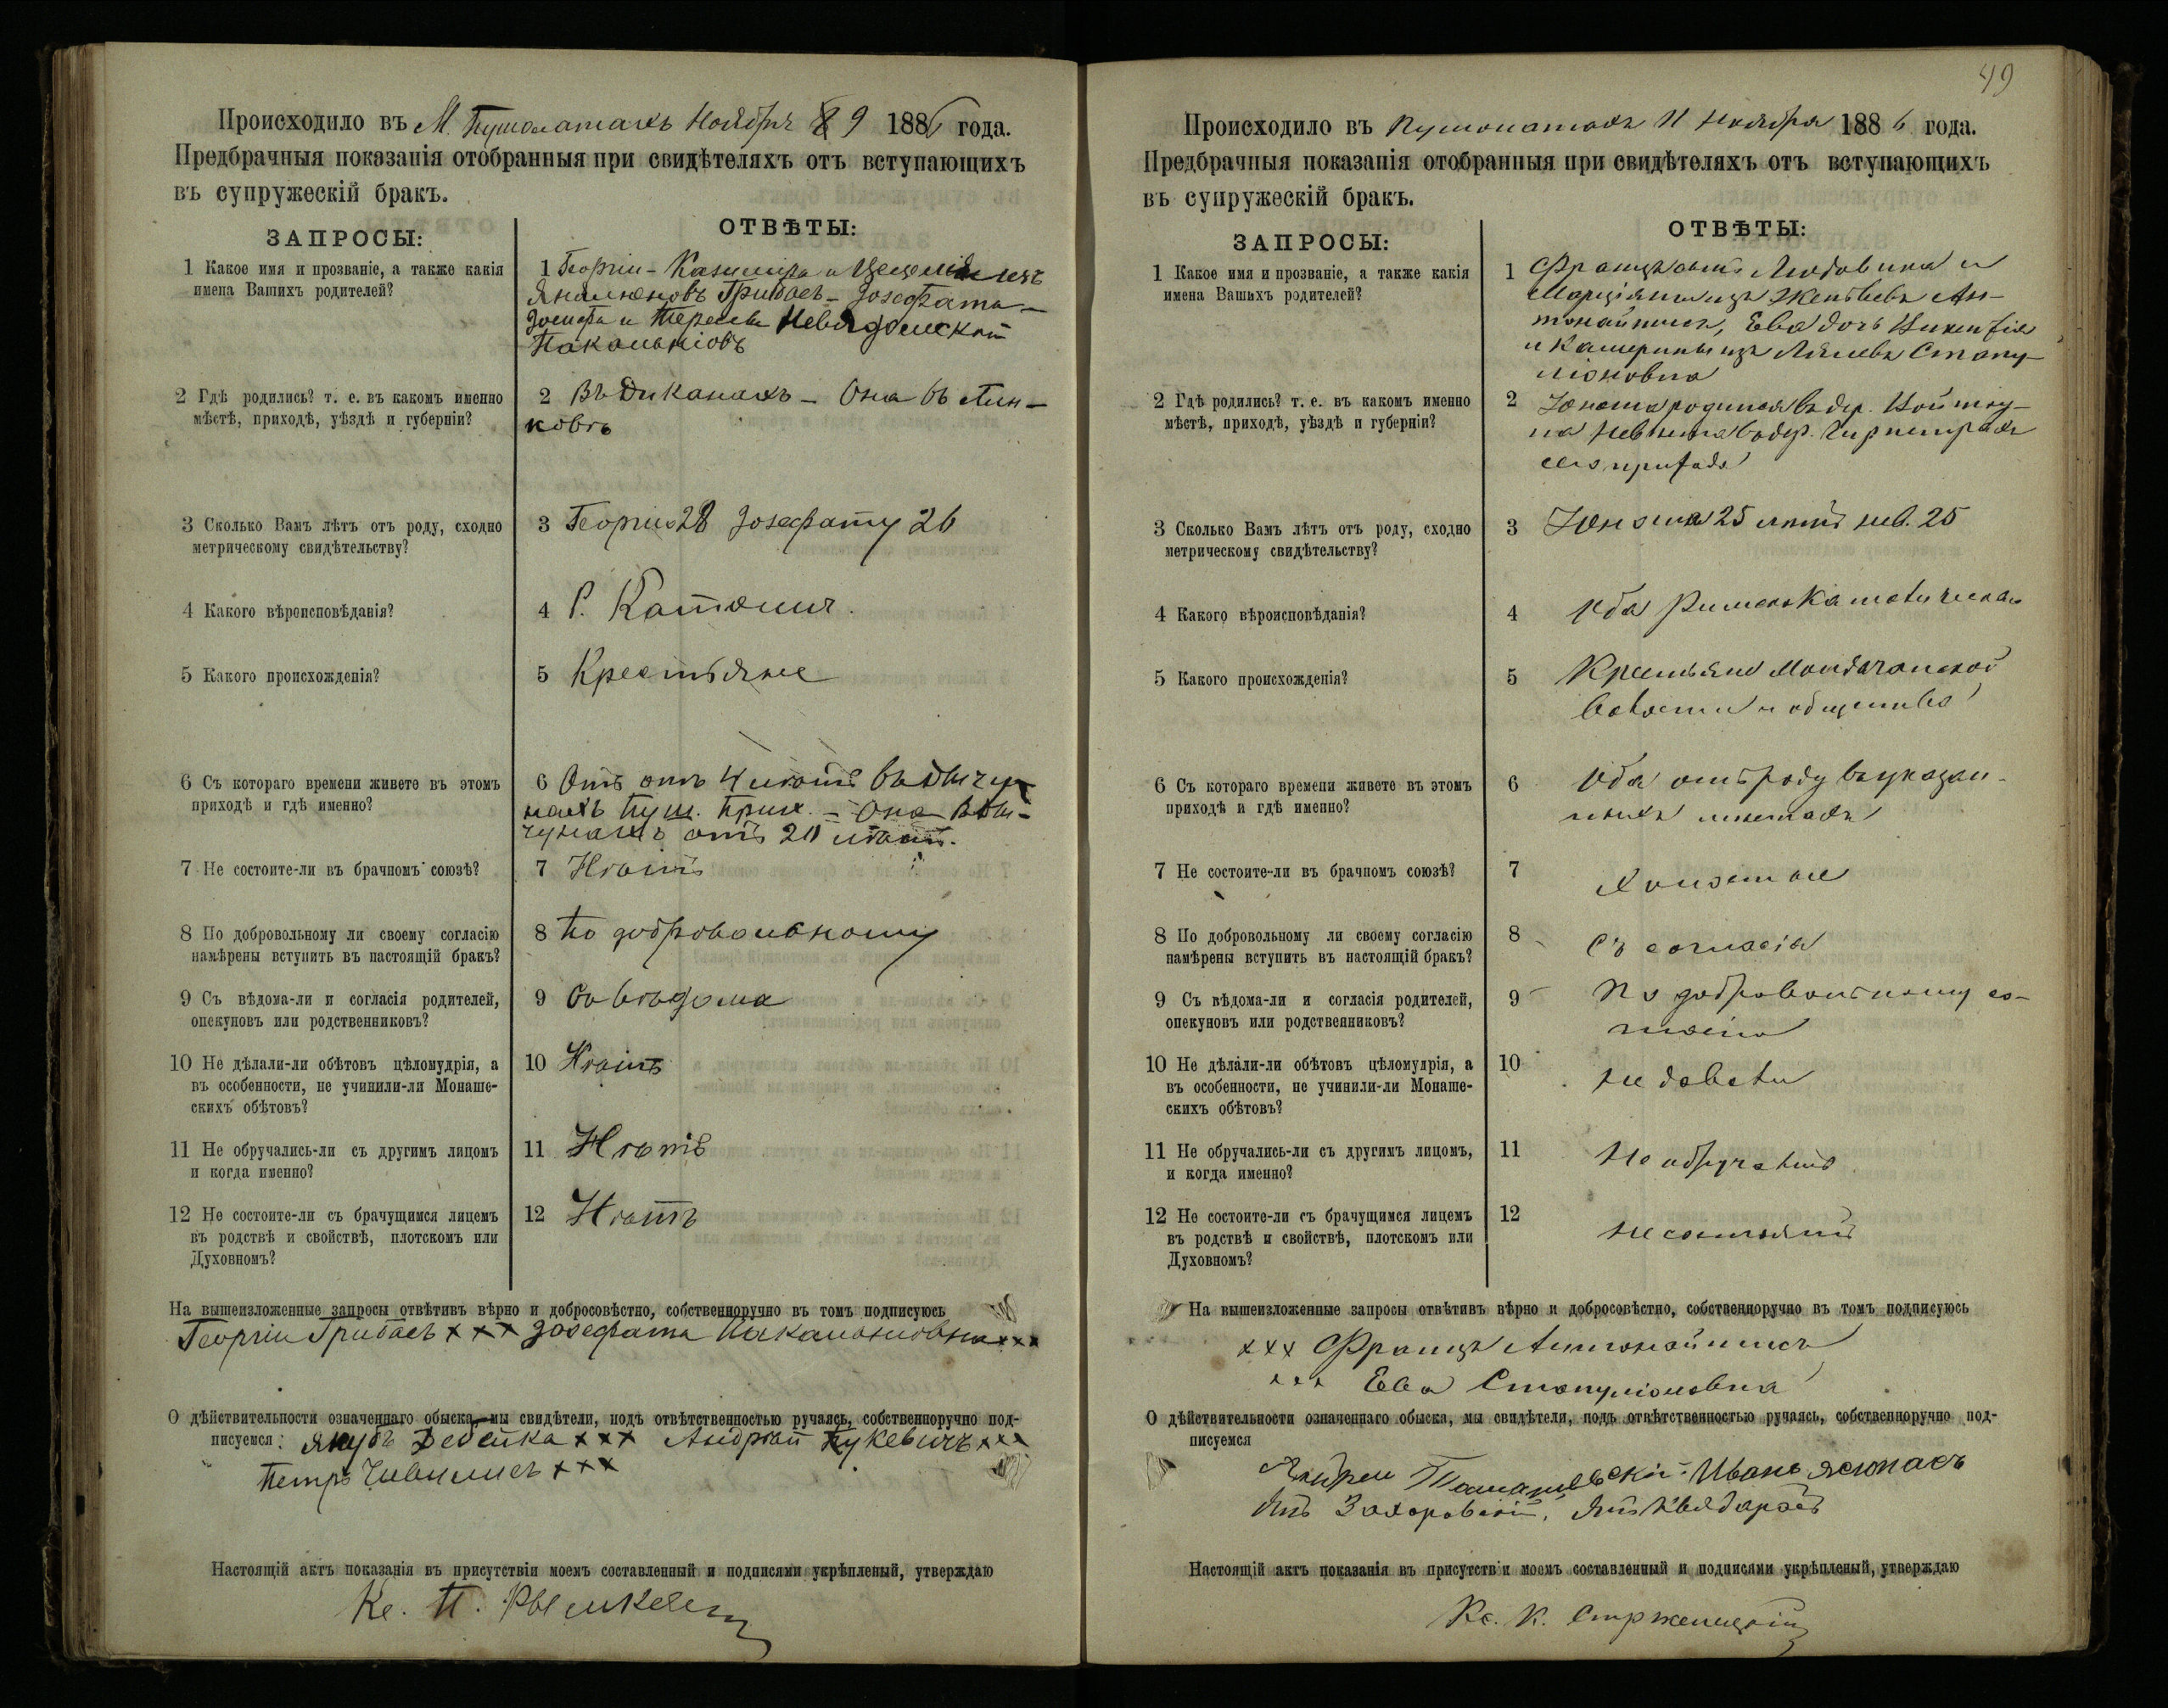 Происходило въ М. Пушолатахъ Ноября 9 1886 года.
Предбрачныя показанія отобранныя при свидѣтеляхъ отъ вступающихъ
въ супружескій бракъ.
ЗАПРОСЫ:
ОТВѢТЫ:
1 Какое имя и прозваніе, а также какія
имена Вашихъ родителей?
1 Георгій - Казимира и изъ
Грибасъ - Іозефата -
Іосифа и Терезы
2 Гдѣ родились? т. е. въ какомъ именно
мѣстѣ, приходѣ, уѣздѣ и губерніи?
2 Въ Диканахъ - Она въ
3 Сколько Вамъ лѣтъ отъ роду, сходно
метрическому свидѣтельству?
3 Георгію 28 Іозефату 26
4 Какого вѣроисповѣданія?
4 Р. Католич.
5 Какого происхожденія?
5 Крестьяне
6 Съ котораго времени живете въ этомъ
приходѣ и гдѣ именно?
6 Онъ отъ 4 лѣтъ
Пуш. Прих. - Она
отъ 20 лѣтъ.
7 Не состоите-ли въ брачномъ союзѣ?
7 Нѣтъ
8 По добровольному ли своему согласію
намѣрены вступить въ настоящій бракъ?
8 По добровольному
9 Съ вѣдома-ли и согласія родителей,
опекуновъ или родственниковъ?
9 Со вѣдома
10 Не дѣлали-ли обѣтовъ цѣломудрія, а
въ особенности, не учинили-ли Монаше-
скихъ обѣтовъ?
10 Нѣтъ
11 Не обручались-ли съ другимъ лицомъ
и когда именно?
11 Нѣтъ
12 Не состоите-ли съ брачущимся лицемъ
въ родствѣ и свойствѣ, плотскомъ или
Духовномъ?
12 Нѣтъ
На вышеизложенные запросы отвѣтивъ вѣрно и добросовѣстно, собственноручно въ томъ подписуюсь
Георгій Грибасъ ххх Іозефата Пакальнювна ххх
О дѣйствительности означеннаго обыска, мы свидѣтели, подъ отвѣтственностью ручаясь, собственноручно под-
писуемся: Якубъ Дебейка ххх Андрей ххх
Петръ ххх
Настоящій актъ показанія въ присутствіи моемъ составленный и подписями укрѣпленый, утверждаю
Кс. П.
49
Происходило въ Пушолатахъ Ноября 1886 года.
Предбрачныя показанія отобранныя при свидѣтеляхъ отъ вступающихъ
въ супружескій бракъ.
ЗАПРОСЫ:
ОТВѢТЫ:
1 Какое имя и прозваніе, а также какія
имена Вашихъ родителей?
1 Францъ сынъ Людовика и
Марціяны изъ Ан-
тонайтисъ, Ева дочь Викентія
и Катерины изъ Стапу-
ліоновна
2 Гдѣ родились? т. е. въ какомъ именно
мѣстѣ, приходѣ, уѣздѣ и губерніи?
2 Юноша родился въ дер.
невѣста въ дер.
сего прихода
3 Сколько Вамъ лѣтъ отъ роду, сходно
метрическому свидѣтельству?
3 Юноша 25 лѣтъ нев. 25
4 Какого вѣроисповѣданія?
4 Оба Римско Католическаго
5 Какого происхожденія?
5 Крестьяне
волости и общества
6 Съ котораго времени живете въ этомъ
приходѣ и гдѣ именно?
6 Оба отъ роду въ указан-
ныхъ мѣстахъ
7 Не состоите-ли въ брачномъ союзѣ?
7 Холостые
8 По добровольному ли своему согласію
намѣрены вступить въ настоящій бракъ?
8 Съ согласія
9 Съ вѣдома-ли и согласія родителей,
опекуновъ или родственниковъ?
9 По добровольному со-
гласію
10 Не дѣлали-ли обѣтовъ цѣломудрія, а
въ особенности, не учинили-ли Монаше-
скихъ обѣтовъ?
10 Не давали
11 Не обручались-ли съ другимъ лицомъ,
и когда именно?
11 Не обручались
12 Не состоите-ли съ брачущимся лицемъ
въ родствѣ и свойствѣ, плотскомъ или
Духовномъ?
12 Не состоятъ
На вышеизложенные запросы отвѣтивъ вѣрно и добросовѣстно, собственноручно въ томъ подписуюсь
ххх Францъ Антонайтисъ
ххх Ева Стапуліоновна
О дѣйствительности означеннаго обыска, мы свидѣтели, подъ отвѣтственностью ручаясь, собственноручно под-
писуемся
Андрей Томашевскій. Иванъ Ясюнасъ
Янъ Захоровскій, Янъ
Настоящій актъ показанія въ присутствіи моемъ составленный и подписями укрѣпленый, утверждаю
Кс. К.